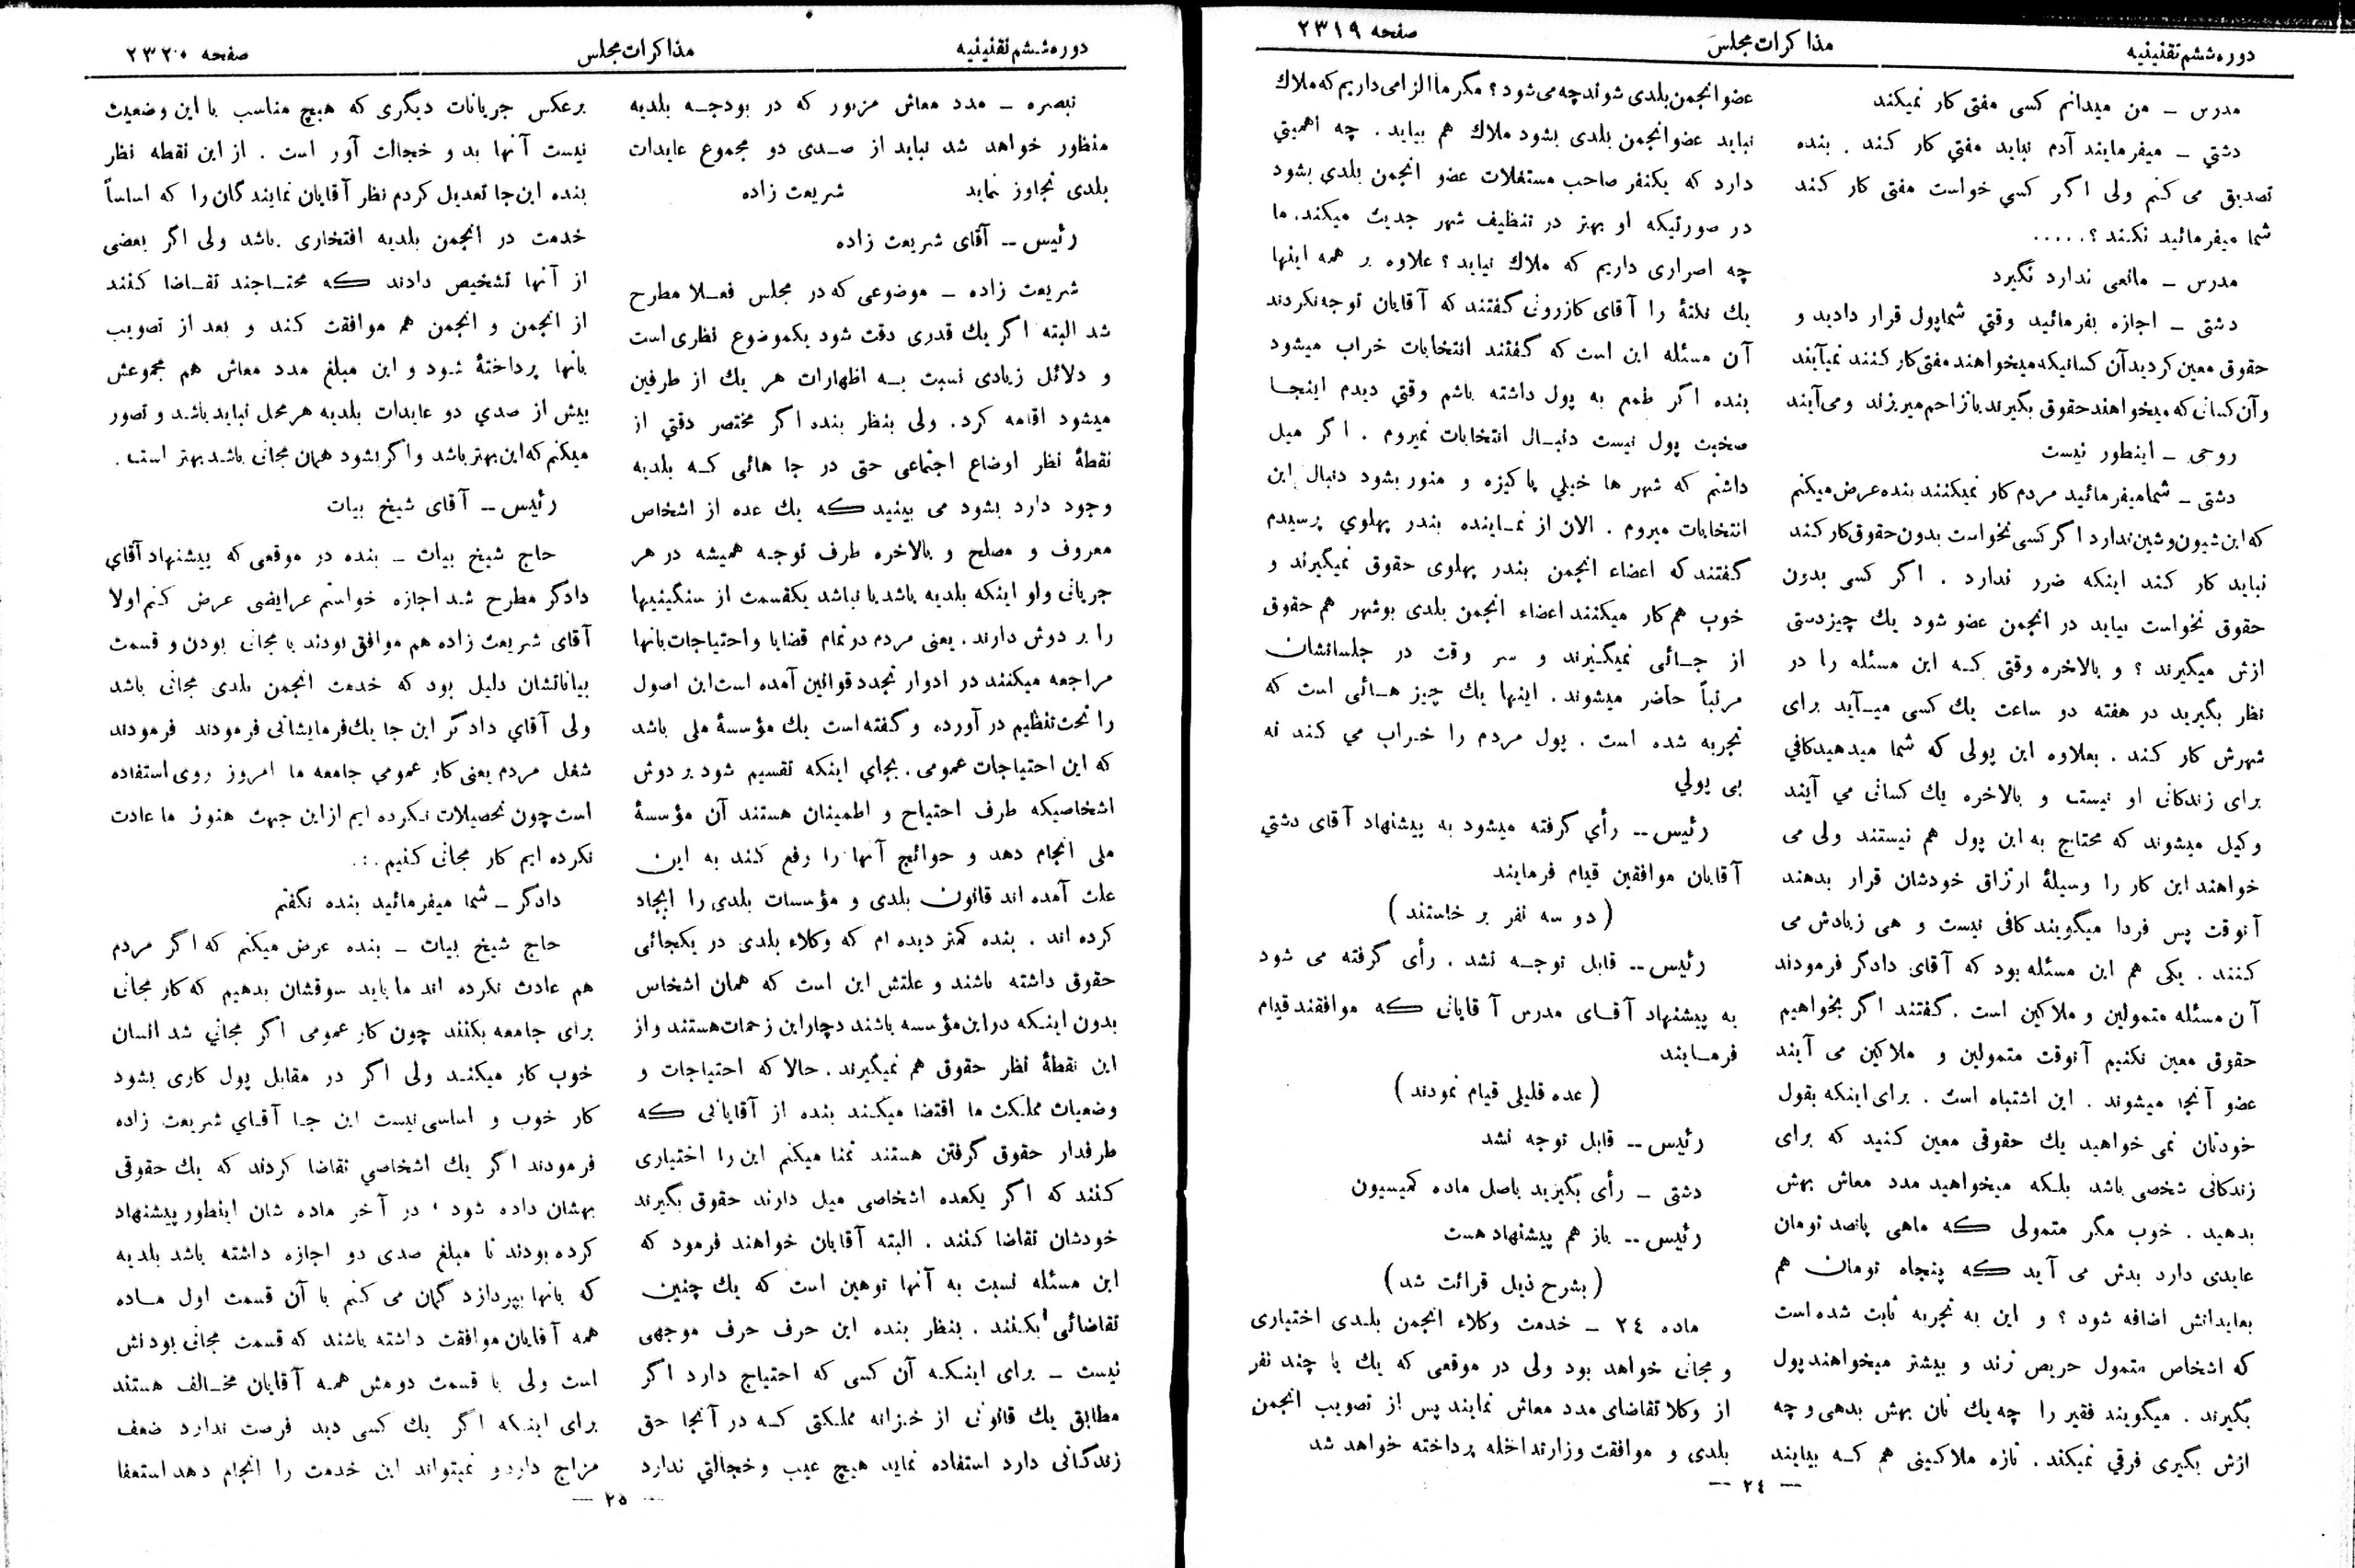 دوره ششم تقنینیه
مذاکرات مجلس
صفحه ۲۳۱۹
مدرس ـ من میدانم کسی مفتی کار نمیکند
دشتی ـ میفرمایند آدم نباید مفتی کار کند . بنده
تصدیق می کنم ولی اگر کسی خواست مفتی کار کند
شما میفرمائید نکند ؟ . . . . .
مدرس ـ مانعی ندارد نگیرد
دشتی ـ اجازه بفرمائید وقتی شما پول قرار دادید و
حقوق معین کردید آن کسانیکه میخواهند مفتی کار کنند نمیآیند
و آن کسانی که میخواهند حقوق بگیرند با زاحم میریزند و می آیند
روحی ـ اینطور نیست
دشتی ـ شما میفرمائید مردم کار نمیکنند بنده عرض میکنم
که این شیون و شین ندارد اگر کسی نخواست بدون حقوق کار کند
نباید کار کند اینکه ضرر ندارد . اگر کسی بدون
حقوق نخواست بیاید در انجمن عضو شود یك چیز دستی
ازش میگیرند ؟ و بالاخره وقتی که این مسئله را در
نظر بگیرید در هفته دو ساعت یك کسی میآید برای
شهرش کار کند . بعلاوه این پولی که شما میدهید کافی
برای زندکانی او نیست و بالاخره یك کسانی می آیند
وکیل میشوند که محتاج به این پول هم نیستند ولی می
خواهند این کار را وسیلهٔ ارتزاق خودشان قرار بدهند
آنوقت پس فردا میگویند کافی نیست و هی زیادش می
کنند . یکی هم این مسئله بود که آقای دادگر فرمودند
آن مسئله متمولین و ملاکین است . گفتند اگر بخواهیم
حقوق معین نکنیم آنوقت متمولین و ملاکین می آیند
عضو آنجا میشوند . این اشتباه است . برای اینکه بقول
خودتان نمی خواهید یك حقوقی معین کنید که برای
زندکانی شخصی باشد بلکه میخواهید مدد معاش بهش
بدهید . خوب مگر متمولی که ماهی پانصد تومان
عایدی دارد بدش می آید که پنجاه تومان هم
بعایداتش اضافه شود ؟ و این به تجربه ثابت شده است
که اشخاص متمول حریص ترند و بیشتر میخواهند پول
بگیرند . میگویند فقیر را چه یك نان بهش بدهی و چه
ازش بگیری فرقی نمیکند . تازه ملاکینی هم که بیایند
عضو انجمن بلدی شوند چه می شود ؟ مگر ما الزامی داریم که ملاك
نباید عضو انجمن بلدی بشود ملاك هم بیاید . چه اهمیتی
دارد که یکنفر صاحب مستغلات عضو انجمن بلدی بشود
در صورتیکه او بهتر در تنظیف شهر جدیت میکند . ما
چه اصراری داریم که ملاك نیاید ؟ علاوه بر همه اینها
یك نکتهٔ را آقای کازرونی گفتند که آقایان توجه نکردند
آن مسئله این است که گفتند انتخابات خراب میشود
بنده اگر طمع به پول داشته باشم وقتی دیدم اینجا
صحبت پول نیست دنبال انتخابات نمیروم . اگر میل
داشتم که شهر ها خیلی پاکیزه و منور بشود دنبال این
انتخابات میروم . الان از نماینده بندر پهلوی پرسیدم
گفتند که اعضاء انجمن بندر پهلوی حقوق نمیگیرند و
خوب هم کار میکنند اعضاء انجمن بلدی بوشهر هم حقوق
از جائی نمیگیرند و سر وقت در جلساتشان
مرتباً حاضر میشوند . اینها یك چیز هائی است که
تجربه شده است . پول مردم را خراب می کند نه
بی پولی
رئیس -- رأی گرفته میشود به پیشنهاد آقای دشتی
آقایان موافقین قیام فرمایند
( دو سه نفر بر خاستند )
رئیس -- قابل توجه نشد . رأی گرفته می شود
به پیشنهاد آقای مدرس آقایانی که موافقند قیام
فرمایند
( عده قلیلی قیام نمودند )
رئیس -- قابل توجه نشد
دشتی ـ رأی بگیرید باصل ماده کمیسیون
رئیس -- باز هم پیشنهاد هست
( بشرح ذیل قرائت شد )
ماده ٢٤ ـ خدمت وکلاء انجمن بلدی اختیاری
و مجانی خواهد بود ولی در موقعی که یك یا چند نفر
از وکلا تقاضای مدد معاش نمایند پس از تصویب انجمن
بلدی و موافقت وزارتداخله پرداخته خواهد شد
— ٢٤ —
دوره ششم تقنینیه
مذاکرات مجلس
صفحه ۲۳۲۰
تبصره ـ مدد معاش مزبور که در بودجه بلدیه
منظور خواهد شد نباید از صدی دو مجموع عایدات
بلدی تجاوز نماید شریعت زاده
رئیس -- آقای شریعت زاده
شریعت زاده ـ موضوعی که در مجلس فعلا مطرح
شد البته اگر یك قدری دقت شود یکموضوع نظری است
و دلائل زیادی نسبت به اظهارات هر یك از طرفین
میشود اقامه کرد . ولی بنظر بنده اگر مختصر دقتی از
نقطهٔ نظر اوضاع اجتماعی حتی در جا هائی که بلدیه
وجود دارد بشود می بینید که یك عده از اشخاص
معروف و مصلح و بالاخره طرف توجه همیشه در هر
جریانی ولو اینکه بلدیه باشد یا نباشد یکقسمت از سنگینیها
را بر دوش دارند . یعنی مردم در تمام قضایا و احتیاجات بانها
مراجعه میکنند در ادوار تجدد قوانین آمده است این اصول
را تحت تنظیم در آورده و گفته است یك مؤسسهٔ ملی باشد
که این احتیاجات عمومی . بجای اینکه تقسیم شود بر دوش
اشخاصیکه طرف احتیاج و اطمینان هستند آن مؤسسهٔ
ملی انجام دهد و حوائج آنها را رفع کند به این
علت آمده اند قانون بلدی و مؤسسات بلدی را ایجاد
کرده اند . بنده کمتر دیده ام که وکلاء بلدی در یکجائی
حقوق داشته باشند و علتش این است که همان اشخاص
بدون اینکه در این مؤسسه باشند دچار این زحمات هستند و از
این نقطهٔ نظر حقوق هم نمیگیرند . حالا که احتیاجات و
وضعیات مملکت ما اقتضا میکند بنده از آقایانی که
طرفدار حقوق گرفتن هستند تمنا میکنم این را اختیاری
کنند که اگر یکعده اشخاصی میل دارند حقوق بگیرند
خودشان تقاضا کنند . البته آقایان خواهند فرمود که
این مسئله نسبت به آنها توهین است که یك چنین
تقاضائی بکنند . بنظر بنده این حرف حرف موجهی
نیست ـ برای اینکه آن کسی که احتیاج دارد اگر
مطابق یك قانونی از خزانه مملکتی که در آنجا حق
زندگانی دارد استفاده نماید هیچ عیب و خجالتی ندارد
برعکس جریانات دیگری که هیچ مناسب با این وضعیت
نیست آنها بد و خجالت آور است . از این نقطه نظر
بنده این جا تعدیل کردم نظر آقایان نمایندگان را که اساساً
خدمت در انجمن بلدیه افتخاری باشد ولی اگر بعضی
از آنها تشخیص دادند که محتاجند تقاضا کنند
از انجمن و انجمن هم موافقت کند و بعد از تصویب
بانها پرداختهٔ شود و این مبلغ مدد معاش هم مجموعش
بیش از صدی دو عایدات بلدیه هر محل نباید باشد و تصور
میکنم که این بهتر باشد و اگر بشود همان مجانی باشد بهتر است .
رئیس -- آقای شیخ بیات
حاج شیخ بیات ـ بنده در موقعی که پیشنهاد آقای
دادگر مطرح شد اجازه خواستم عرایضی عرض کنم اولا
آقای شریعت زاده هم موافق بودند با مجانی بودن و قسمت
بیاناتشان دلیل بود که خدمت انجمن بلدی مجانی باشد
ولی آقای دادگر این جا یك فرمایشاتی فرمودند فرمودند
شغل مردم یعنی کار عمومی جامعه ما امروز روی استفاده
است چون تحصیلات نکرده ایم از این جهت هنوز ما عادت
نکرده ایم کار مجانی کنیم . . .
دادگر ـ شما میفرمائید بنده نگفتم
حاج شیخ بیات ـ بنده عرض میکنم که اگر مردم
هم عادت نکرده اند ما باید سوقشان بدهیم که کار مجانی
برای جامعه بکنند چون کار عمومی اگر مجانی شد انسان
خوب کار میکند ولی اگر در مقابل پول کاری بشود
کار خوب و اساسی نیست این جا آقای شریعت زاده
فرمودند اگر یك اشخاصی تقاضا کردند که یك حقوقی
بهشان داده شود ، در آخر ماده شان اینطور پیشنهاد
کرده بودند تا مبلغ صدی دو اجازه داشته باشد بلدیه
که بانها بپردازد گمان می کنم با آن قسمت اول ماده
همه آقایان موافقت داشته باشند که قسمت مجانی بودنش
است ولی با قسمت دومش همه آقایان مخالف هستند
برای اینکه اگر یك کسی دید فرصت ندارد ضعف
مزاج دارد و نمیتواند این خدمت را انجام دهد استعفا
— ٢٥ —